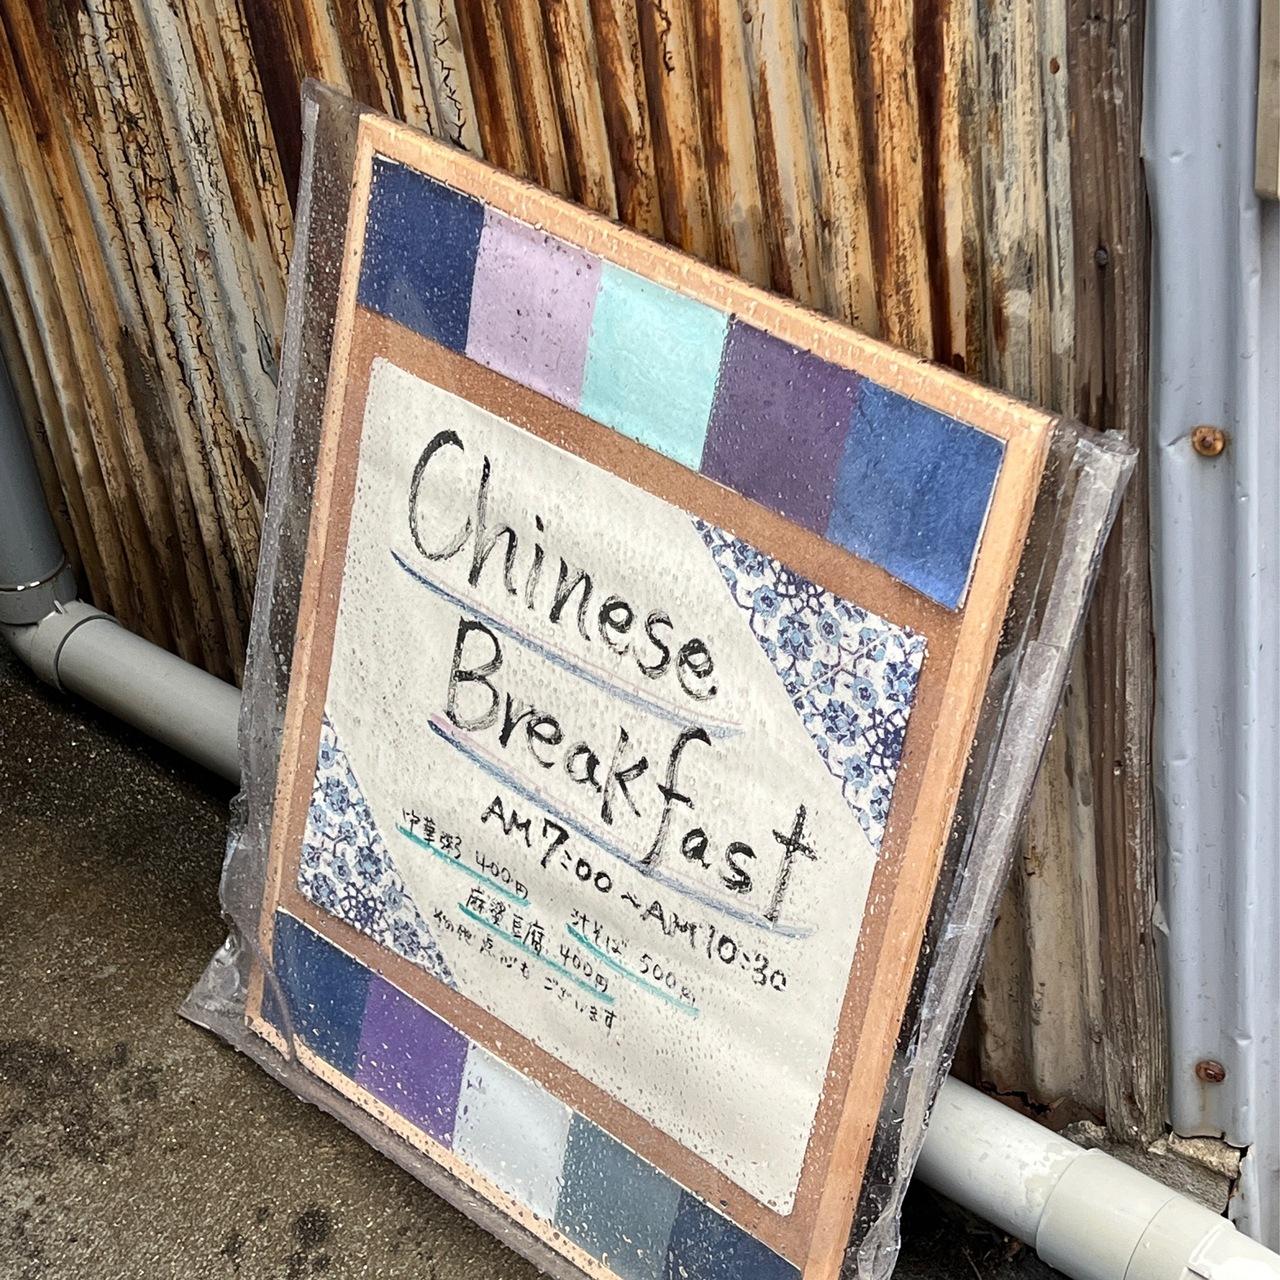 Chinese
Breakfast
AM7:00~AM10:30
中華粥 400円
汁そば 500円
麻婆豆腐 400円
他 点心も ございます